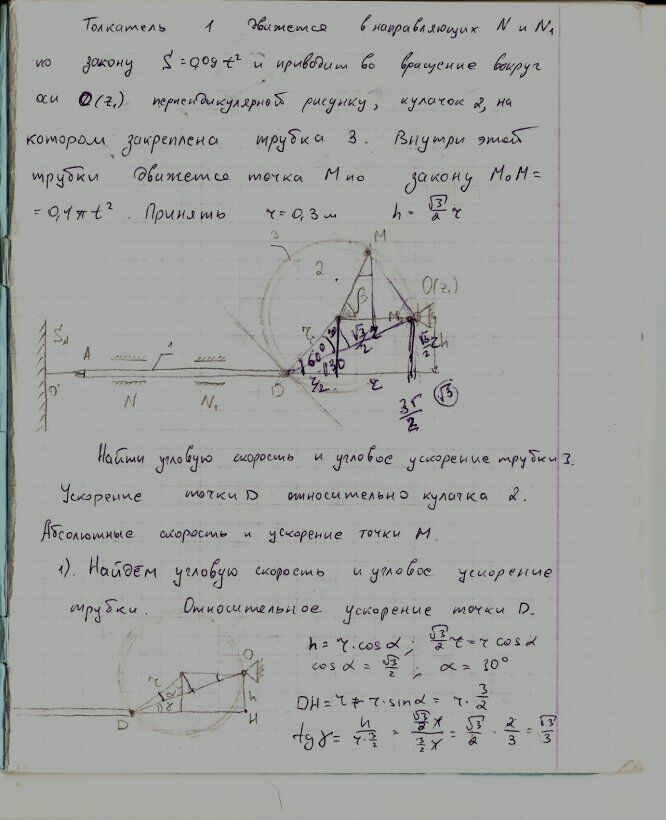 Толкатель 1 движется в направляющих N и N₁
по закону S=0,09 t² и приводит во вращение вокруг
оси O(z₁) перпендикулярной рисунку, кулачок 2, на
котором закреплена трубка 3. Внутри этой
трубки движется точка M по закону M₀M=
=0,1πt². Принять r=0,3 м h=√3/2 r
M
3
2
O(z₁)
β
M
r
√3/2
√3/2 r
h
60°
30
Sd
A
1
O'
N
N₁
D
r/2
r
3r/2
√3
Найти угловую скорость и угловое ускорение трубки 3.
Ускорение точки D относительно кулачка 2.
Абсолютные скорость и ускорение точки M.
1). Найдём угловую скорость и угловое ускорение
трубки. Относительное ускорение точки D.
h = r·cos α ; √3/2 r = r cos α
cos α = √3/2 ; α = 30°
DH = r + r·sin α = r·3/2
tg γ = h/(r·3/2) = (√3/2 r)/(3/2 r) = √3/2 · 2/3 = √3/3
O
r
α
γ
h
D
H